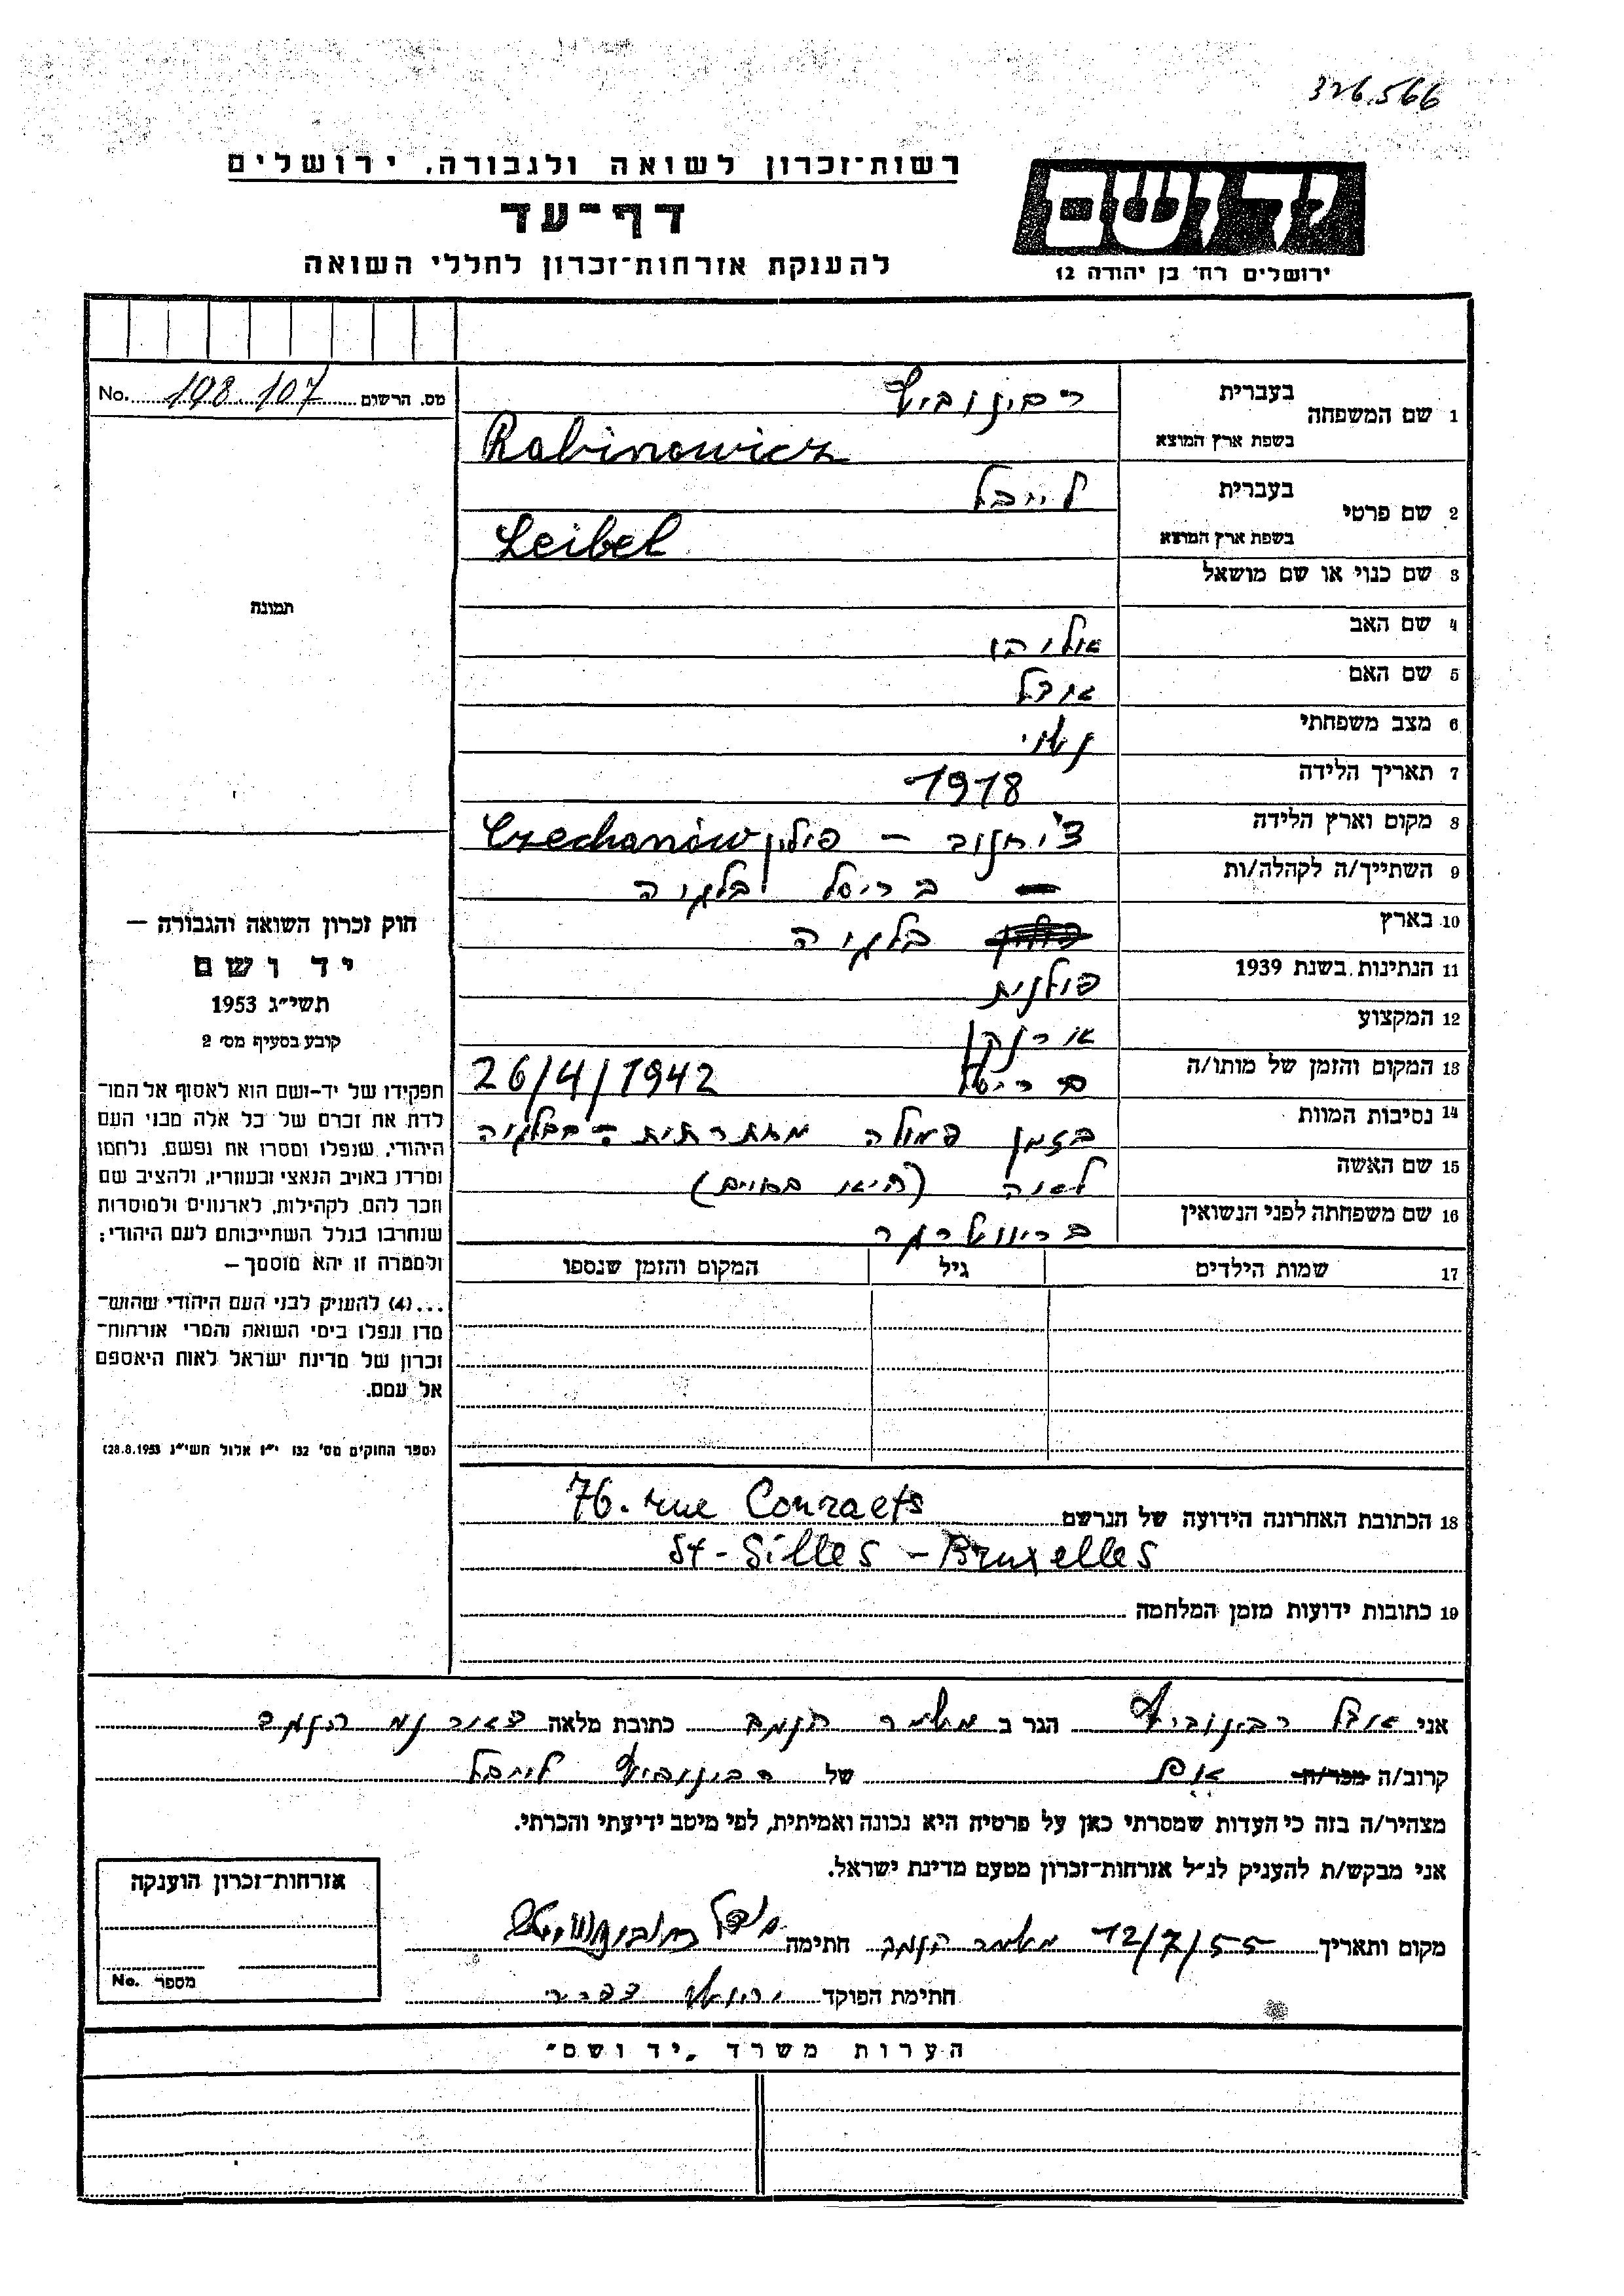 326.566
רשות־זכרון לשואה ולגבורה, ירושלים
דף־עד
להענקת אזרחות־זכרון לחללי השואה
יד ושם
ירושלים רח׳ בן יהודה 12
מס. הרשום 198.107 No.
1 שם המשפחה בעברית רבינוביץ
בשפת ארץ המוצא Rabinowicz
2 שם פרטי בעברית לייבל
בשפת ארץ המוצא Leibel
3 שם כנוי או שם מושאל
4 שם האב אליהו
5 שם האם אודל
6 מצב משפחתי נשוי
7 תאריך הלידה 1918
8 מקום וארץ הלידה צ'יחנוב – פולין Czechanów
9 השתייך/ה לקהלה/ות בריסל בלגיה
10 בארץ בלגיה
11 הנתינות בשנת 1939 פולנית
12 המקצוע ארנקן
13 המקום והזמן של מותו/ה בריסל 26/4/1942
14 נסיבות המוות בזמן פעולה מחתרתית בבלגיה
15 שם האשה לאה (היא בחיים)
16 שם משפחתה לפני הנשואין
17 שמות הילדים גיל המקום והזמן שנספו
18 הכתובת האחרונה הידועה של הנרשם 76. rue Conraets
St-Gilles – Bruxelles
19 כתובות ידועות מזמן המלחמה
תמונה
חוק זכרון השואה והגבורה —
יד ושם
תשי״ג 1953
קובע בסעיף מס׳ 2
תפקידו של יד-ושם הוא לאסוף אל המו־
לדת את זכרם של כל אלה מבני העם
היהודי, שנפלו ומסרו את נפשם, נלחמו
ומרדו באויב הנאצי ובעוזריו, ולהציב שם
וזכר להם, לקהילות, לארגונים ולמוסדות
שנחרבו בגלל השתייכותם לעם היהודי;
ולמטרה זו יהא מוסמך —
...(4) להעניק לבני העם היהודי שהוש־
מדו ונפלו בימי השואה והמרי אזרחות־
זכרון של מדינת ישראל לאות היאספם
אל עמם.
(ספר החוקים מס׳ 132 י״ז אלול תשי״ג 28.8.1953)
אני אודל רבינוביץ הגר ב משמר הנגב כתובת מלאה דואר נע הנגב
קרוב/ה מכר/ה של רבינוביץ לייבל
מצהיר/ה בזה כי העדות שמסרתי כאן על פרטיה היא נכונה ואמיתית, לפי מיטב ידיעתי והכרתי.
אני מבקש/ת להעניק לנ״ל אזרחות־זכרון מטעם מדינת ישראל.
מקום ותאריך 12/7/55 משמר הנגב חתימה
חתימת הפוקד
אזרחות־זכרון הוענקה
מספר No.
הערות משרד „יד ושם״